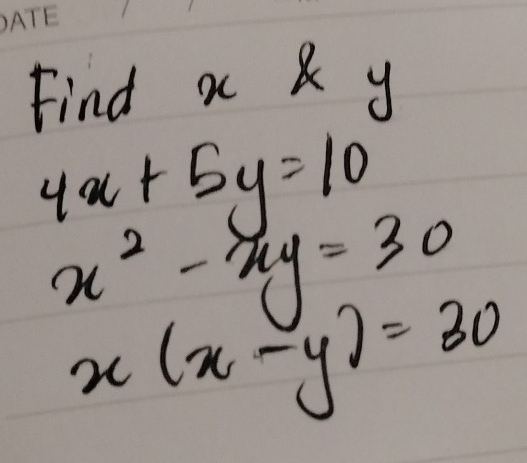 DATE / /
Find x & y
4x + 5y = 10
x² - xy = 30
x (x - y) = 30